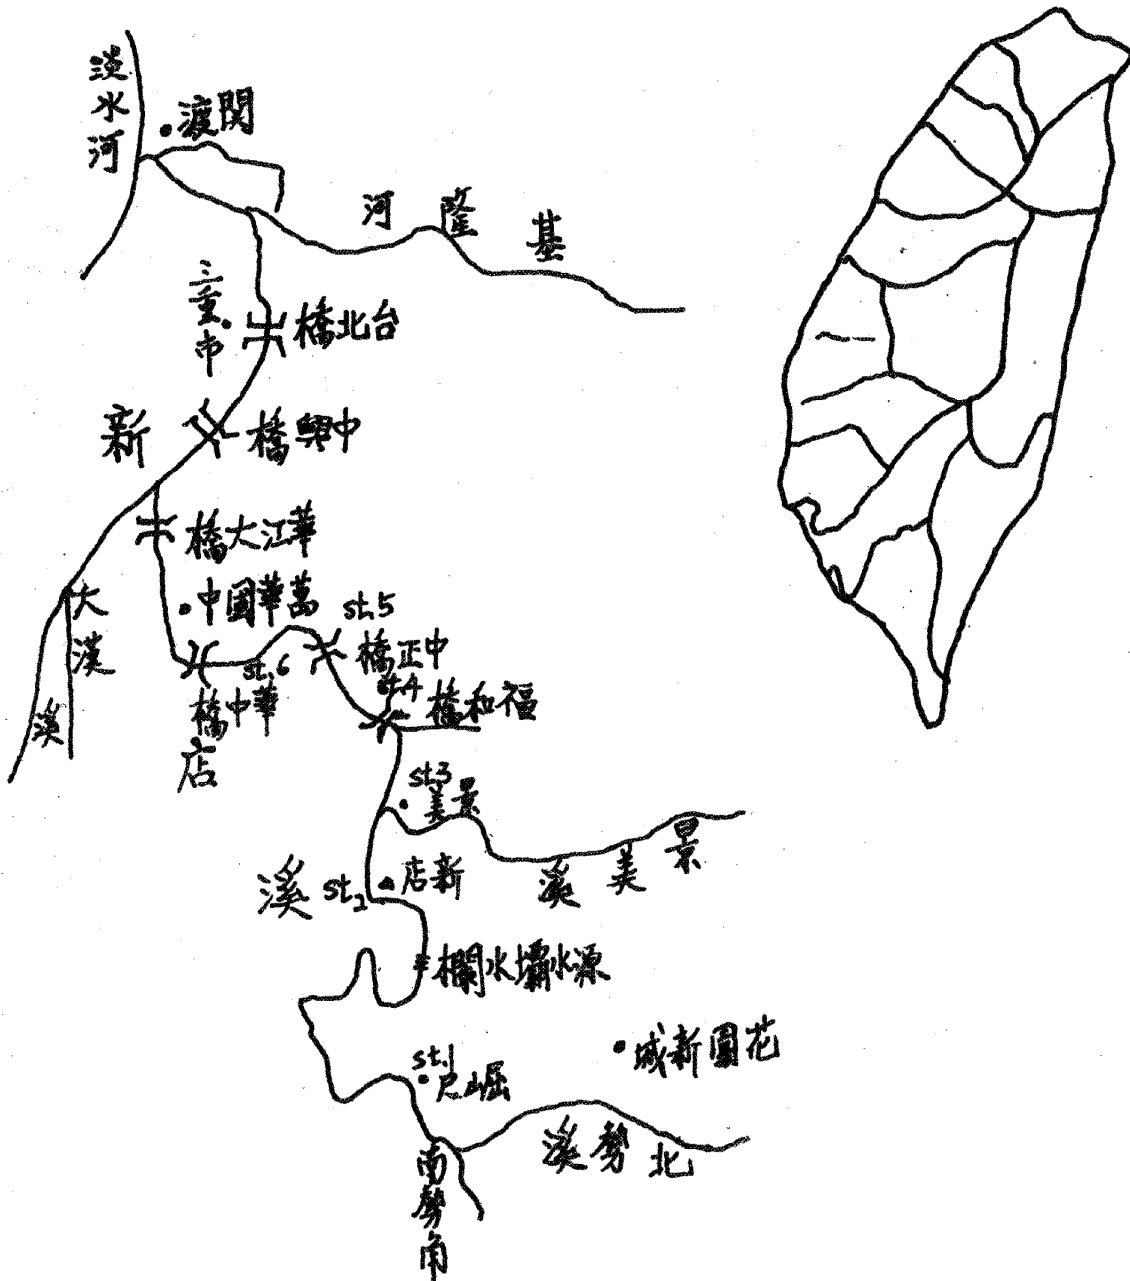 淡水河
渡関
河隆基
三重市
橋北台
新
橋興中
橋大江華
大漢溪
中國華萬
st.5
橋正中
st.6
st.4
橋中華
橋和福
店
st.3
美景
溪
st2
店新
溪美景
欄水壩水源
城新園花
st.1
尺山屈
溪勢北
南勢角